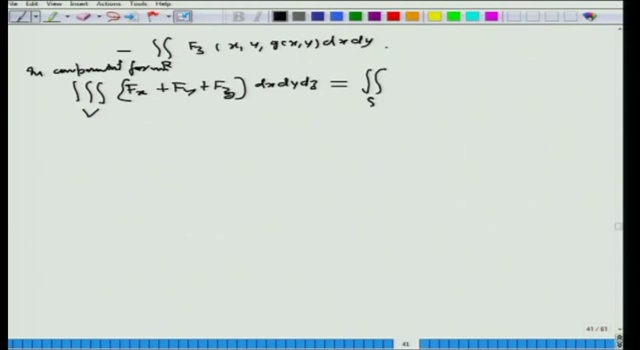 File Edit View Insert Actions Tools Help
− ∬ F₃ (x, y, g(x,y) dx dy.
R
In component form
∭ {Fx + Fy + F₃} dx dy dz = ∬
V S
41 / 61
41